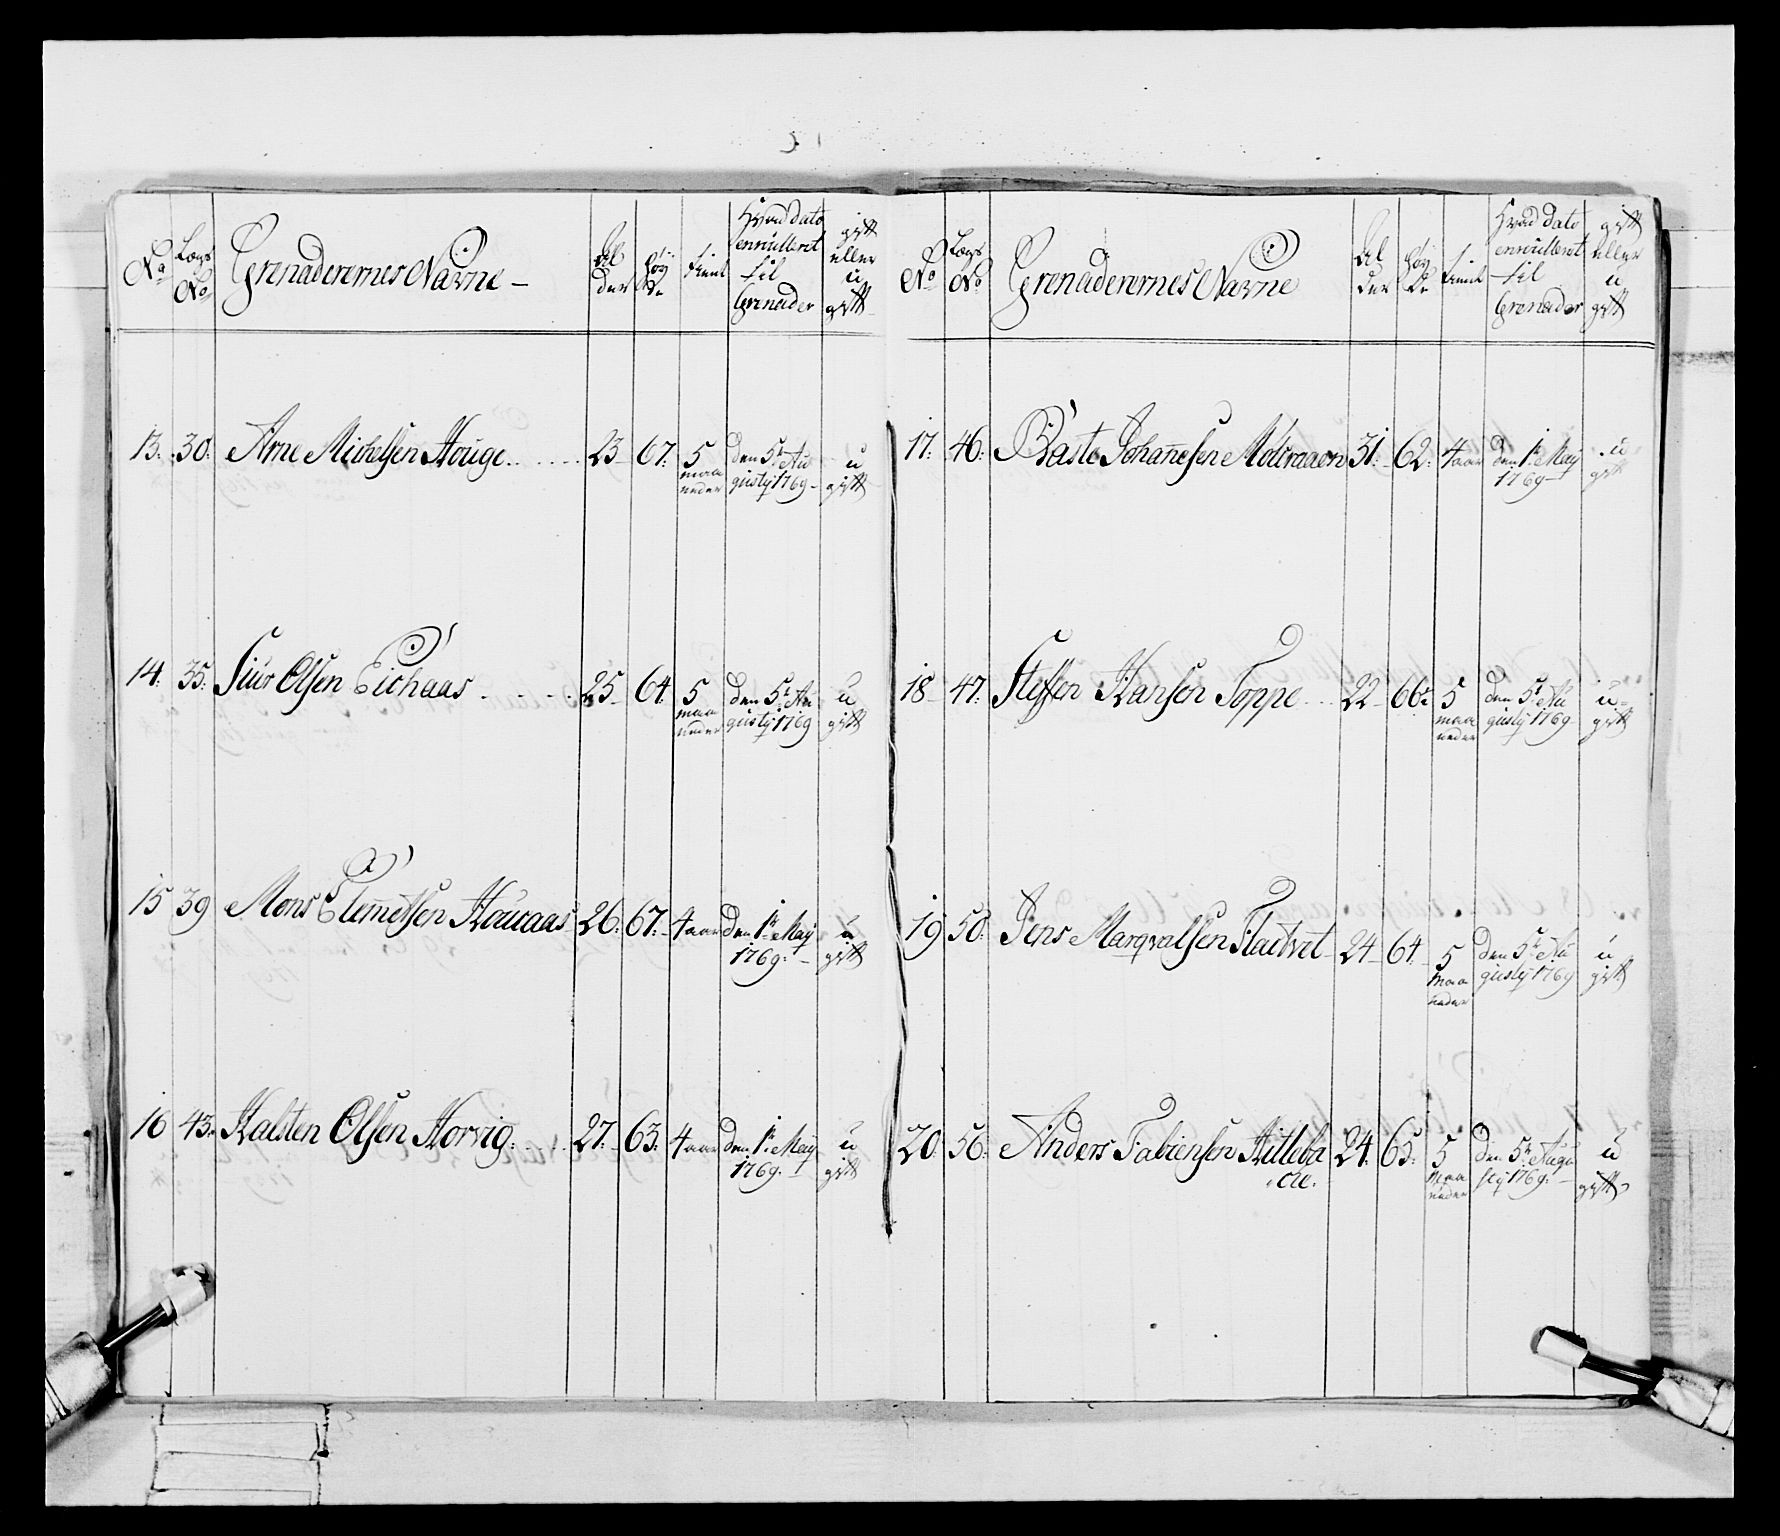 No Lægs No Grenaderernes Navne - Al der Høy de tient Hvad dato enrulleret til Grenader gift eller u gift
13. 30. Arne Michelsen Houge 23 67. 5 maa neder den 5t Au gustÿ 1769 - u gift
14. 35. Siur Olsen Eichaas 25 64 5 maa neder den 5t Au gustÿ 1769 u gift
15 39 Mons Clemetsen Houcaas 26. 67. 4 aar den 1te Maÿ 1769. u gift
16 43. Halsten Olsen Horvig. 27. 63. 4 aar den 1te Maÿ 1769. u gift
No Lægs No Grenaderernes Navne Al der Høy de tient Hvad dato enrulleret til Grenader gift eller u gift
17. 46. Baste Johannesen 31. 62. 4 aar den 1te Maÿ 1769 u gift
18 47. Steffen Hansen Toppe 22 66. 5 maa neder den 5t Au gustÿ 1769 u gift
19 50. Jens Marqvalsen Flatvet 24 64 5 maa neder den 5t Au gustÿ 1769 u gift
20. 56. Anders Fabiensen 24. 65. 5 maa neder den 5te Augu stÿ 1769. u gift